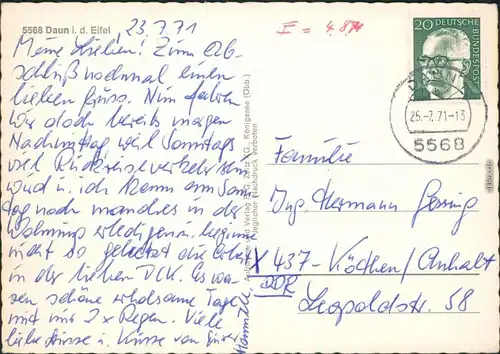 5568 Daun i. d. Eifel
23.7.71
Meine Lieben! Zum Ab-
schluß nochmal einen
lieben Gruss. Nun fahren
wir doch bereits morgen
Nachmittag weil Sonntags
viel Rückreiseverkehr sein
wird u. ich kann am Sonn-
tag noch manches in der
Wohnung erledigen.
nicht so gehetzt die
in der lieben DCK. Es wa-
ren schöne erholsame Tage
mit nur 2x Regen. Viele
liebe Grüsse u. Küsse von
I = 4.8.71
20 DEUTSCHE
BUNDESPOST
DAUN
26.-7.71-13
5568
Familie
Ing. Hermann Gersing
X 437-Köthen/Anhalt
DDR
Leopoldstr. 58
Königssee (Obb.)
Jeglicher Nachdruck verboten